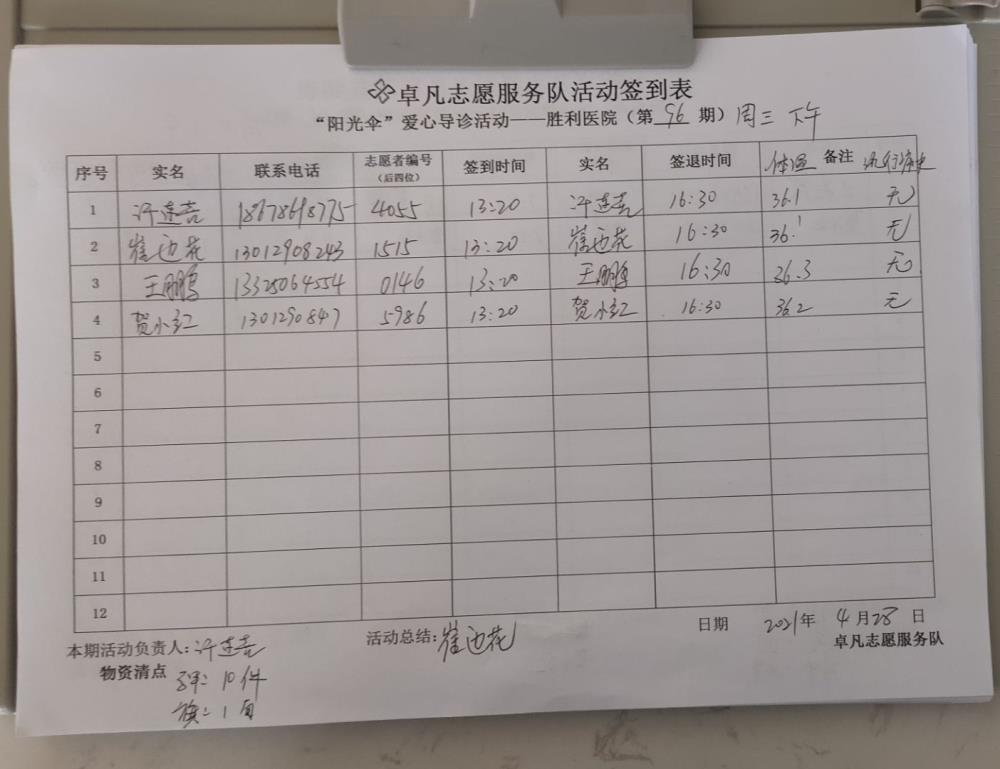 卓凡志愿服务队活动签到表
“阳光伞”爱心导诊活动——胜利医院（第 96 期）周三 下午
序号 实名 联系电话 志愿者编号（后四位） 签到时间 实名 签退时间 体温 备注 流行病史
1 许连喜 18678698775 4055 13:20 许连喜 16:30 36.1 无
2 崔迎花 13012908243 1515 13:20 崔迎花 16:30 36.1 无
3 王鹏鹏 13325064554 0146 13:20 王鹏鹏 16:30 36.3 无
4 贺小红 1301290847 5986 13:20 贺小红 16:30 36.2 无
5
6
7
8
9
10
11
12
本期活动负责人：许连喜 活动总结：崔迎花 日期 2021年 4月28日
卓凡志愿服务队
物资清点 10件
旗：1面